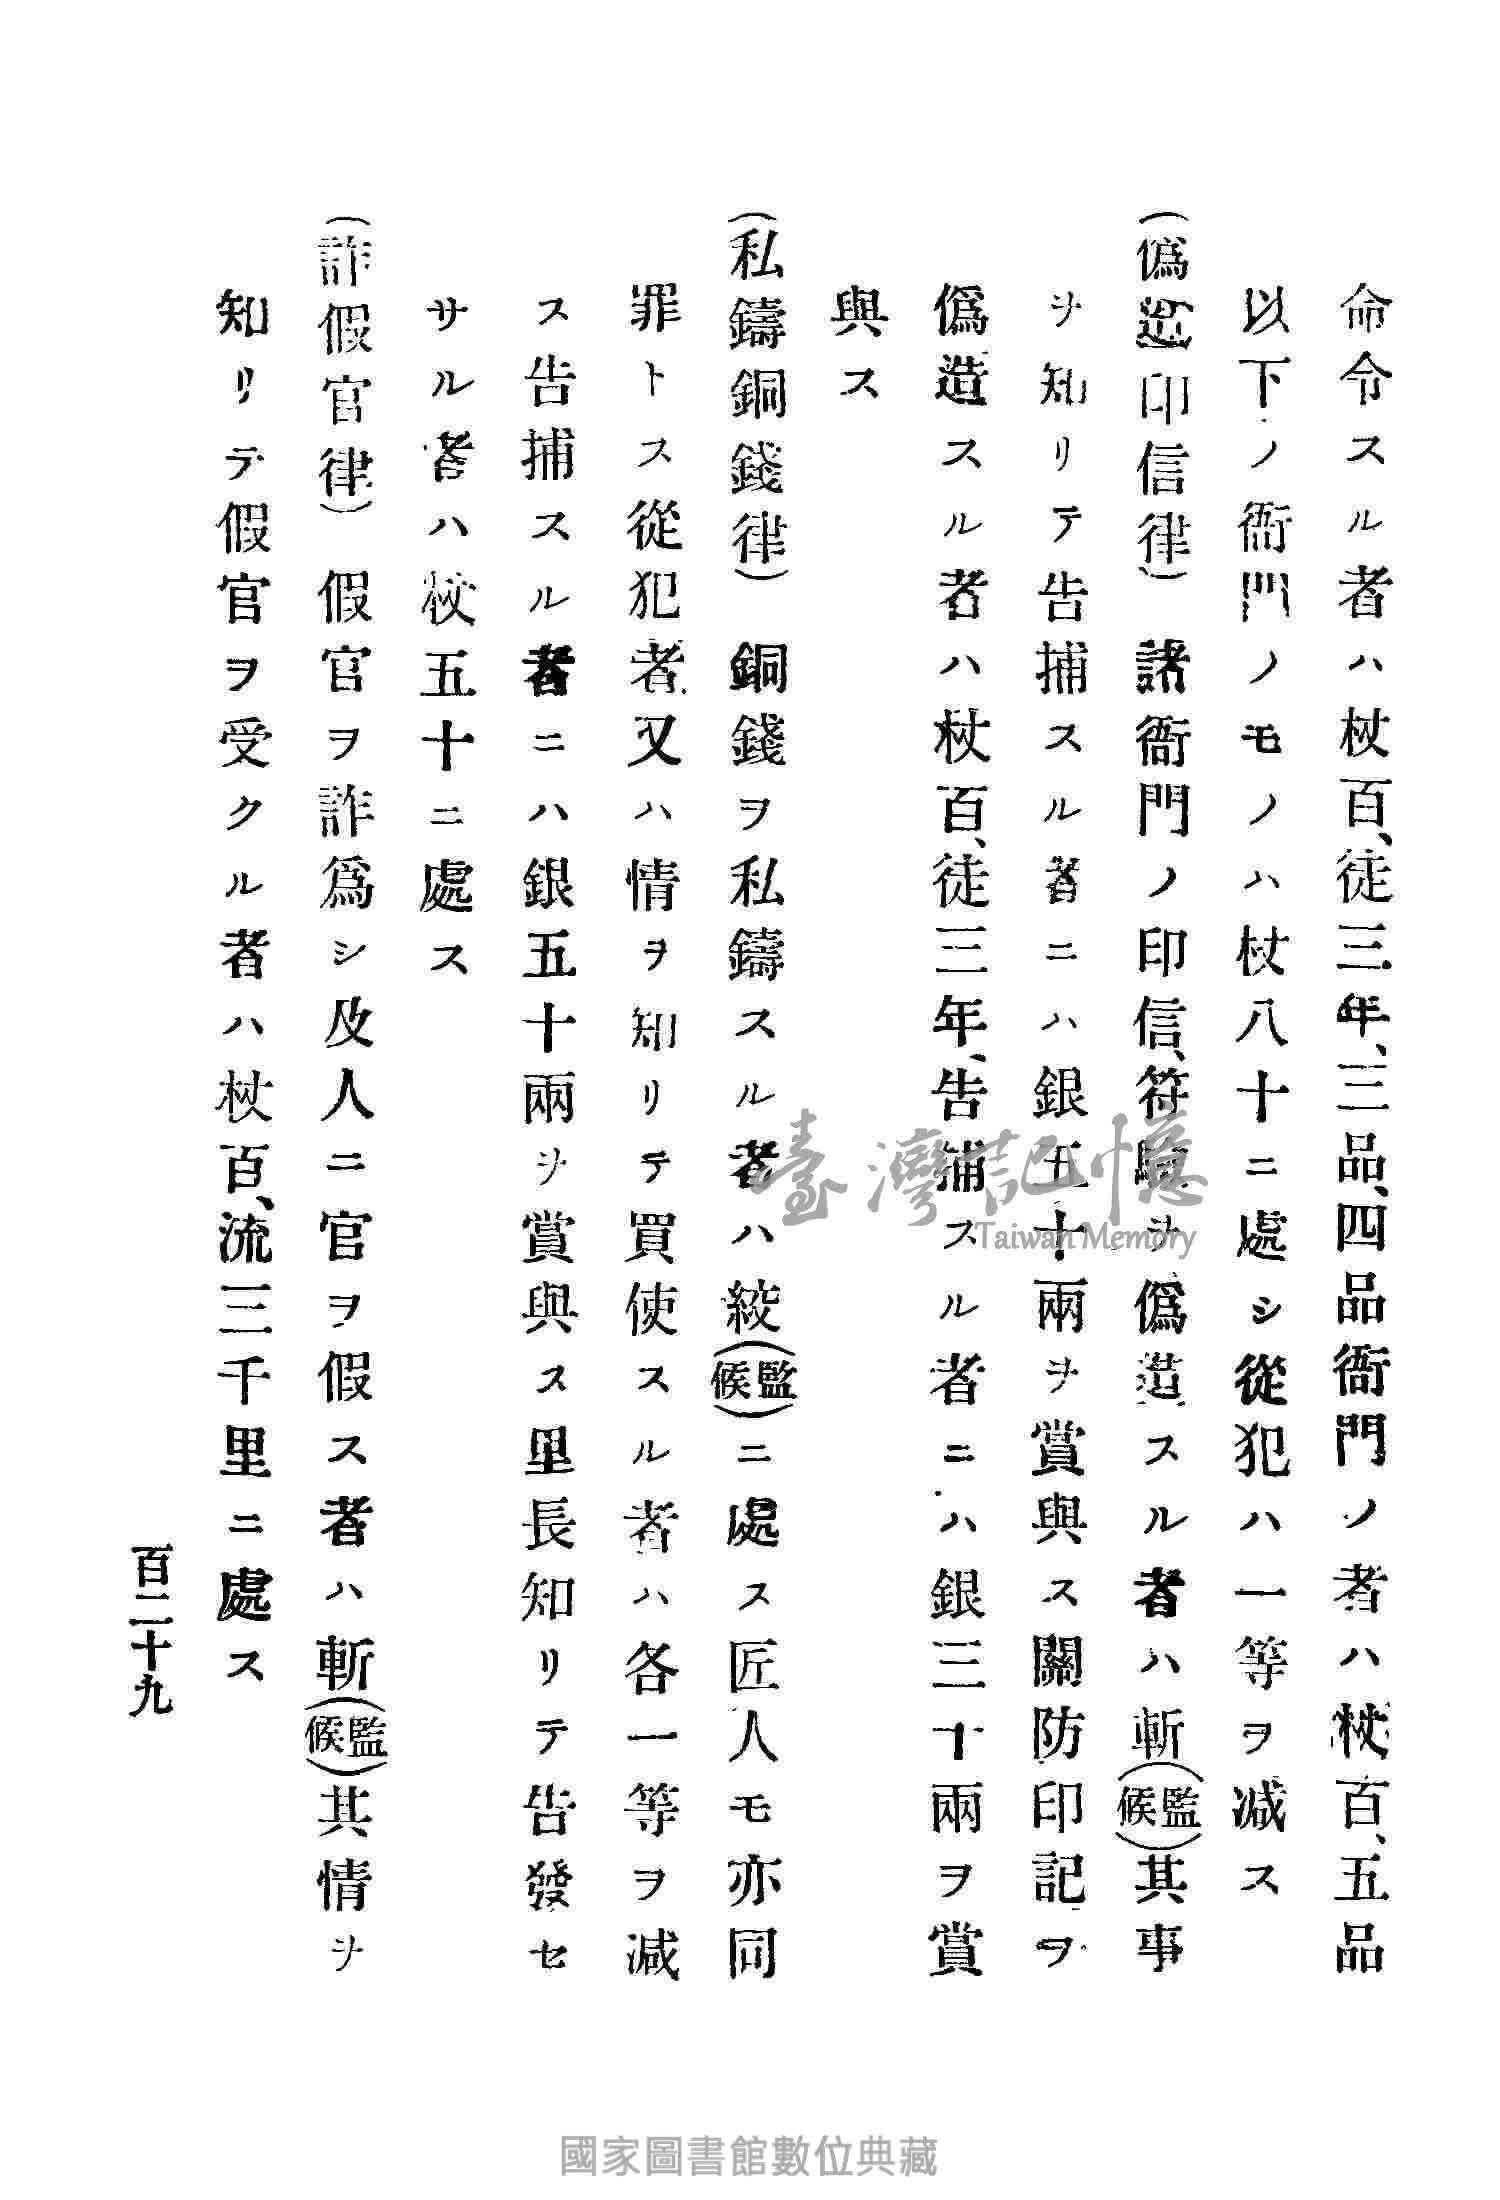 命令スル者ハ杖百、徒三年、三品、四品衙門ノ者ハ杖百、五品
以下ノ衙門ノモノハ杖八十ニ處シ從犯ハ一等ヲ减ス
(僞造印信律) 諸衙門ノ印信、符驗ヲ僞造スル者ハ斬(監候)其事
ヲ知リテ告捕スル者ニハ銀五十兩ヲ賞與ス關防印記ヲ
僞造スル者ハ杖百、徒三年、告捕スル者ニハ銀三十兩ヲ賞
與ス
(私鑄銅錢律) 銅錢ヲ私鑄スル者ハ絞(監候)ニ處ス匠人モ亦同
罪トス從犯者又ハ情ヲ知リテ買使スル者ハ各一等ヲ减
ス告捕スル者ニハ銀五十兩ヲ賞與ス里長知リテ告發セ
サル者ハ杖五十ニ處ス
(詐假官律) 假官ヲ詐爲シ及人ニ官ヲ假ス者ハ斬(監候)其情ヲ
知リテ假官ヲ受クル者ハ杖百、流三千里ニ處ス
百二十九
臺灣記憶
Taiwan Memory
國家圖書館數位典藏